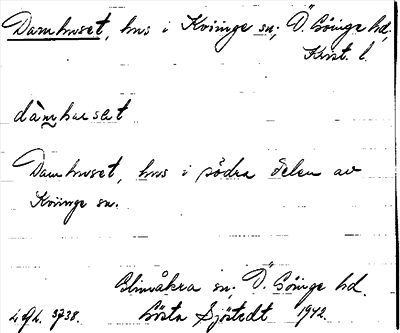 Damhuset, hus i Kviinge sn; Ö. Göinge hd,
Krist. l.
damhuset
Damhuset, hus i södra delen av
Kviinge sn.
Glimåkra sn; Ö. Göinge hd.
4973738. Gösta Sjöstedt 1942.